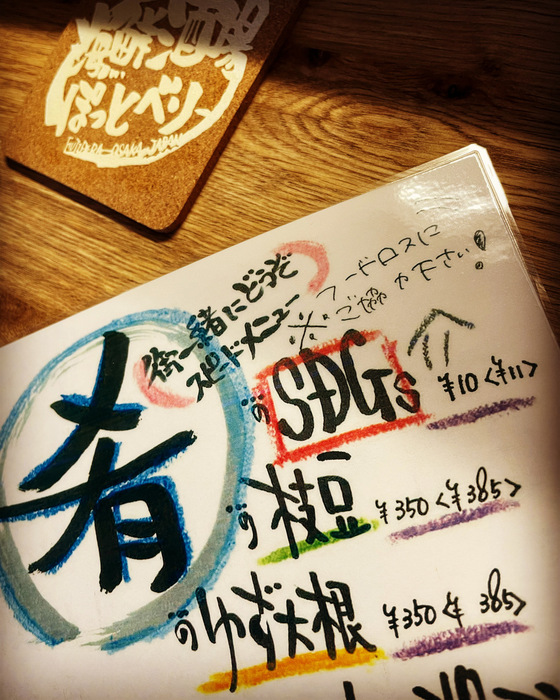 ぼっとベリー
OSAKA JAPAN
肴
街一緒にどうぞ
スピードメニュー
※フードロスに
ご協力下さい!
の SDGs ¥10<¥11>
の 枝豆 ¥350<¥385>
の ゆず大根 ¥350<¥385>